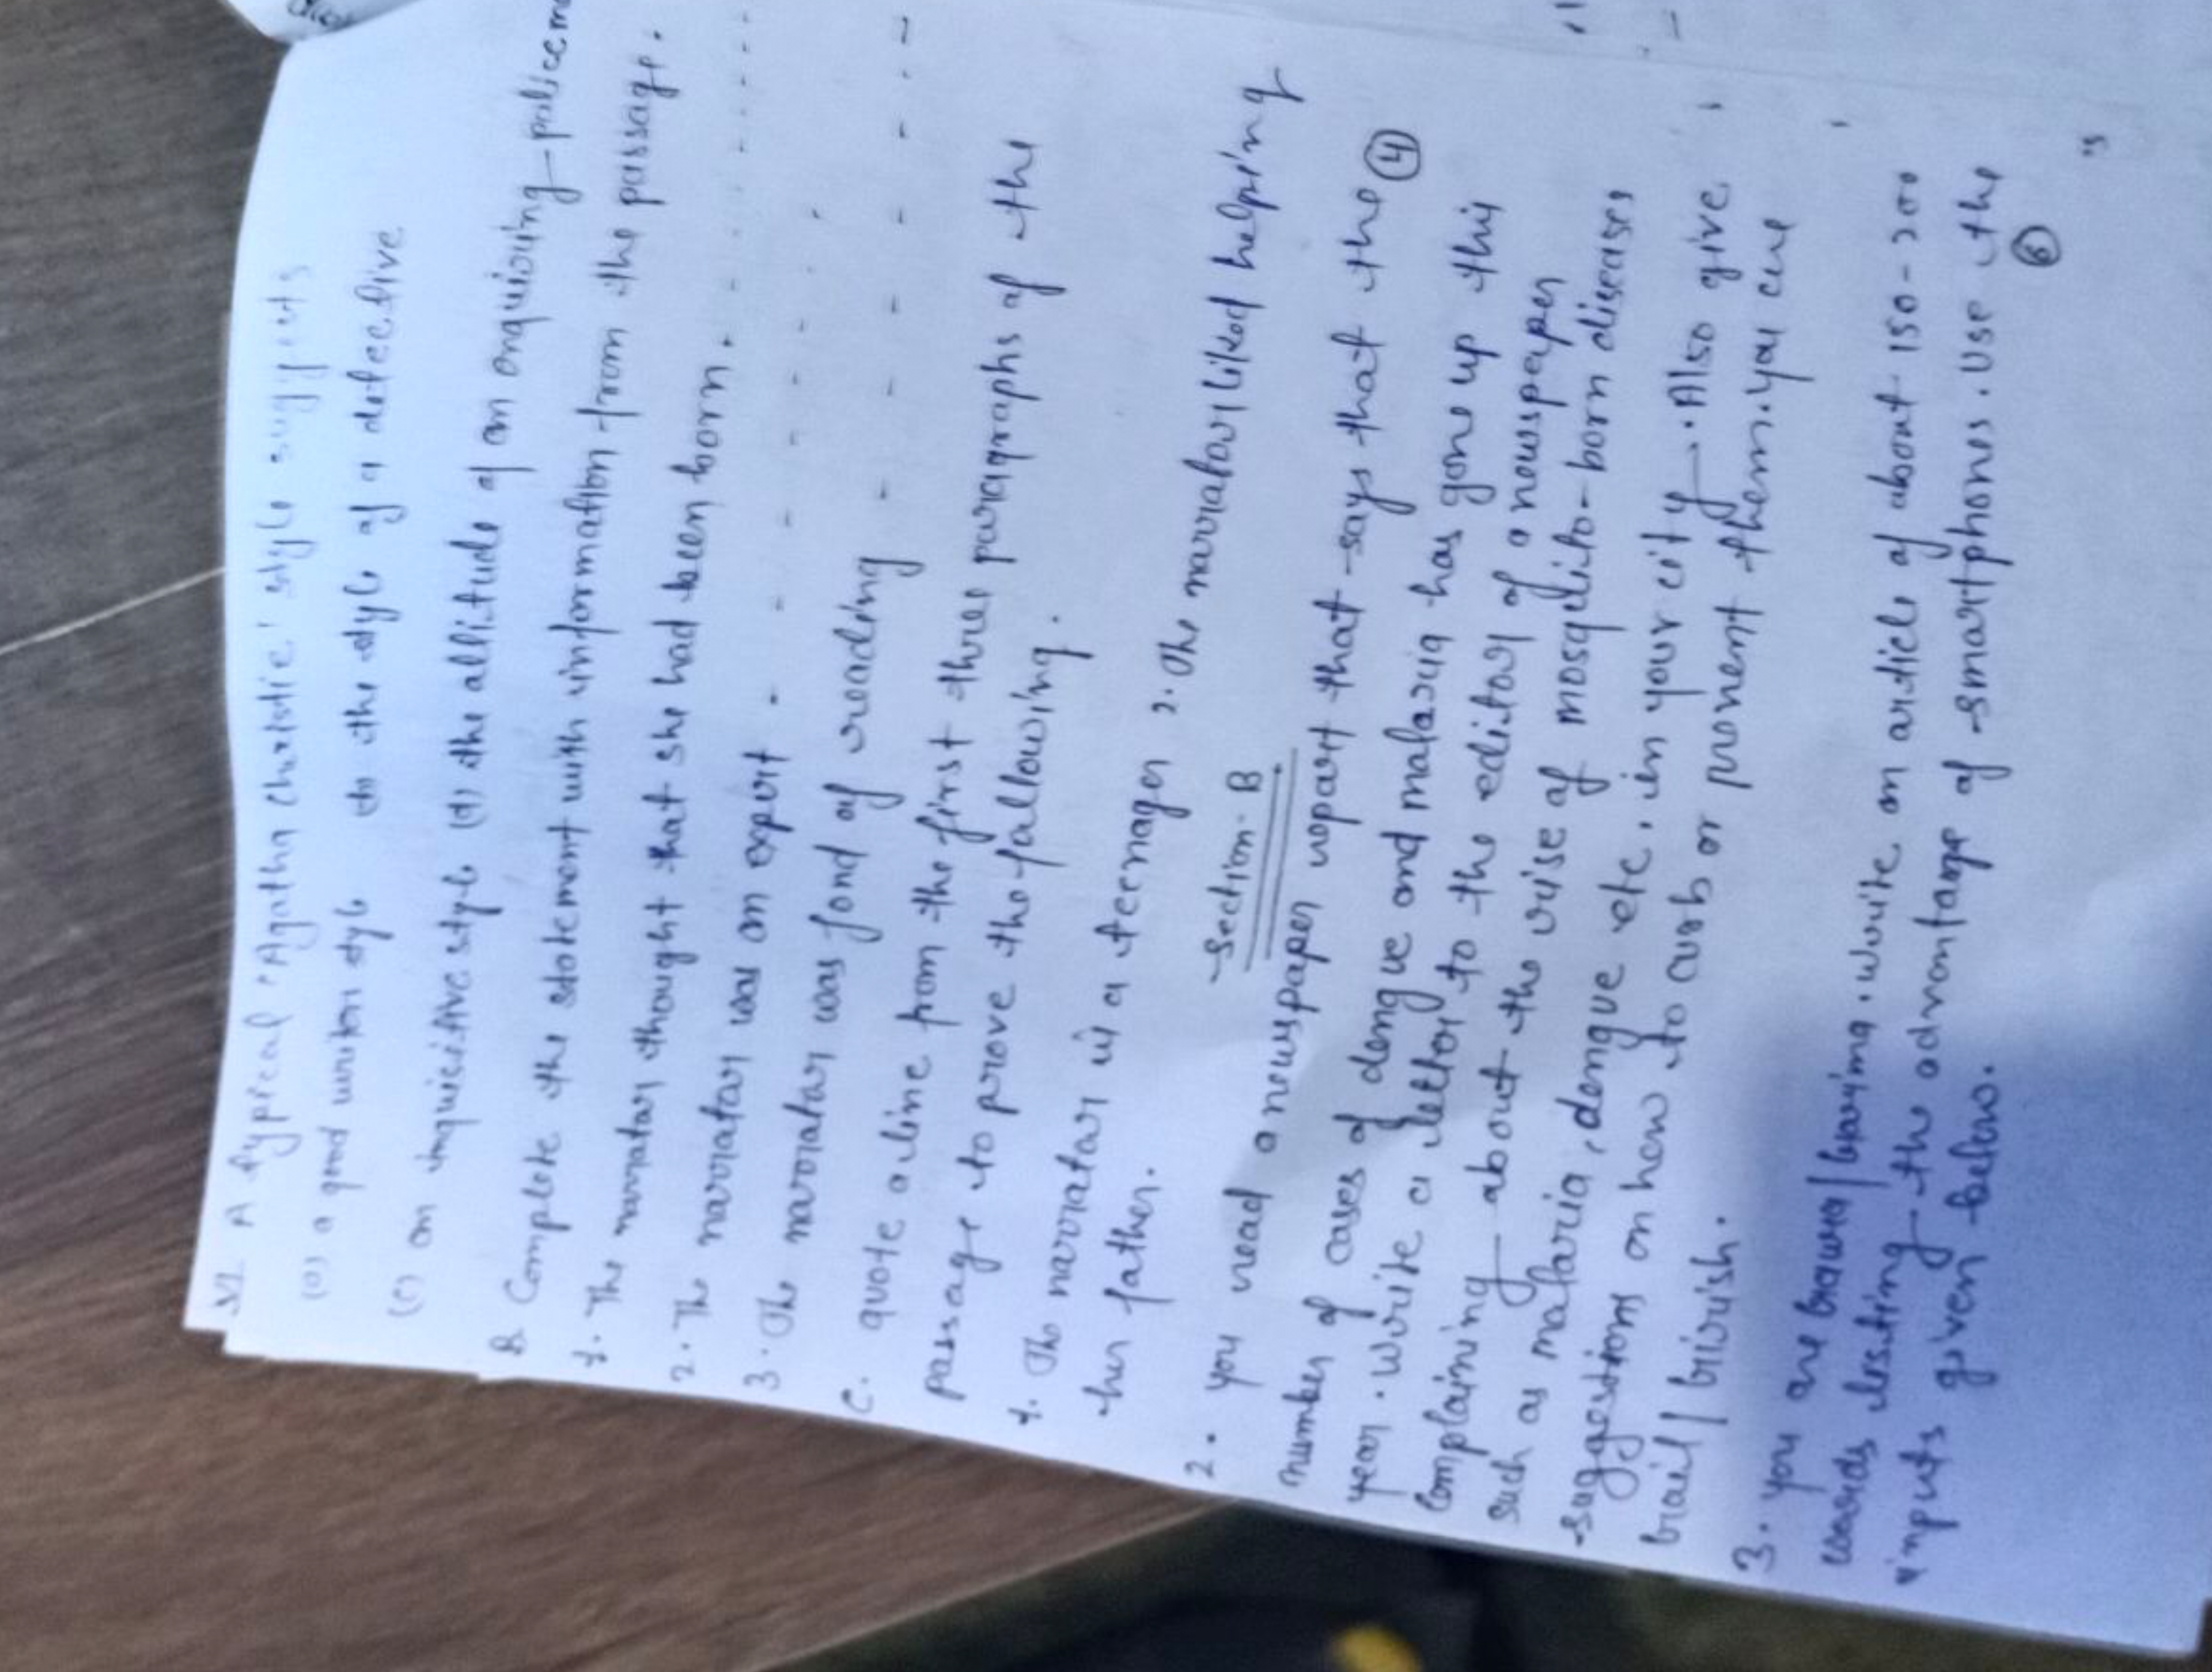 VI. A typical 'Agatha Christie' style suggests
(a) a good writer style (b) the style of a detective
(c) an inquisitive style (d) the attitude of an enquiring policem
B Complete the statement with information from the passage.
1. The narrator thought that she had been born.
2. The narrator was an expert
3. The narrator was fond of reading
C. quote a line from the first three paragraphs of the
passage to prove the following.
1. The narrator is a teenager 2. The narrator liked helping
her father.
Section-B
2. you read a newspaper report that says that the (4)
number of cases of dengue and malaria has gone up this
year. Write a letter to the editor of a newspaper
complaining about the rise of mosquito-born diseases
such as malaria, dengue etc. in your city. Also give
suggestions on how to curb or prevent them. you are
3. you are write an article of about 150-200
words listing the advantage of smartphones. Use the
inputs given below. (6)